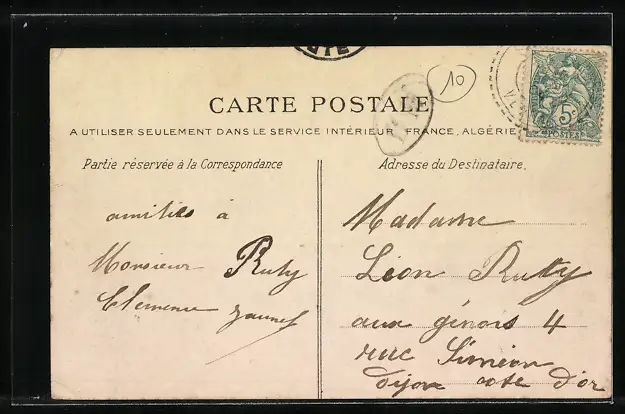 CARTE POSTALE
A UTILISER SEULEMENT DANS LE SERVICE INTÉRIEUR FRANCE, ALGÉRIE
Partie réservée à la Correspondance
Adresse du Destinataire.
10
5c
POSTES
amitiés à
Monsieur Ruty
Clemence
Madame
Léon Ruty
aux génois 4
rue Siméon
Dijon cote d'or